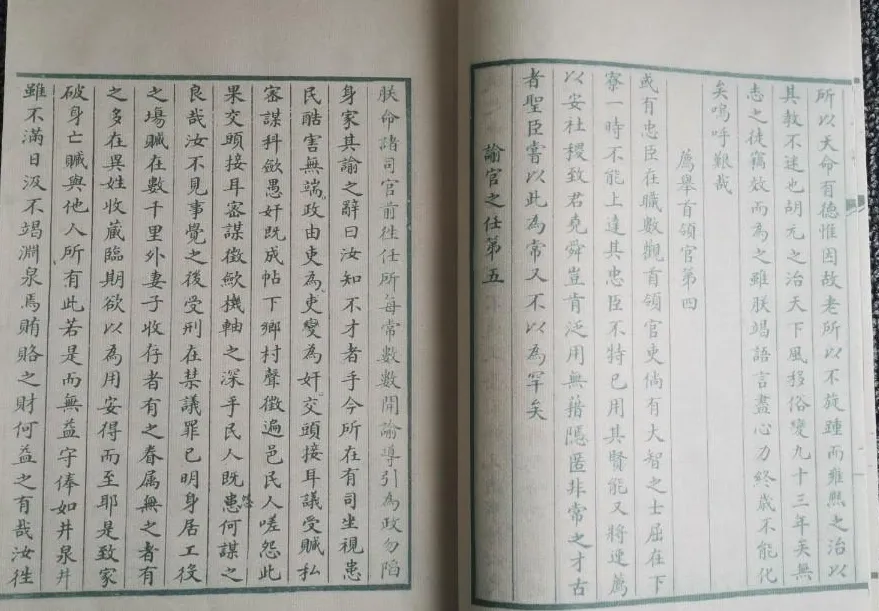 所以天命有德惟因故老所以不旋踵而雍熙之治以
其教不迷也胡元之治天下風移俗變九十三年矣無
志之徒竊效而為之雖朕竭語言盡心力終歲不能化
矣嗚呼艱哉
薦舉首領官第四
或有忠臣在職數觀首領官吏倘有大智之士屈在下
寮一時不能上達其忠臣不特已用其賢能又將速薦
以安社稷致君堯舜豈肯泛用無藉隱匿非常之才古
者聖臣嘗以此為常又不以為罕矣
諭官之任第五
朕命諸司官前往任所每常數數開諭導引為政勿陷
身家其諭之辭曰汝知不才者乎今所在有司坐視患
民酷害無端政由吏為吏變為奸交頭接耳議受贓私
審謀科斂愚奸既成帖下鄉村聲徵遍邑民人嗟怨此
果交頭接耳審謀徵斂機軸之深乎民人既患何謀之
良哉汝不見事覺之後受刑在禁議罪已明身居工役
之場贓在數千里外妻子收存者有之眷屬無之者有
之多在異姓收藏臨期欲以為用安得而至耶是致家
破身亡贓與他人所有此若是而無益守俸如井泉井
雖不滿日汲不竭淵泉焉賄賂之財何益之有哉汝往